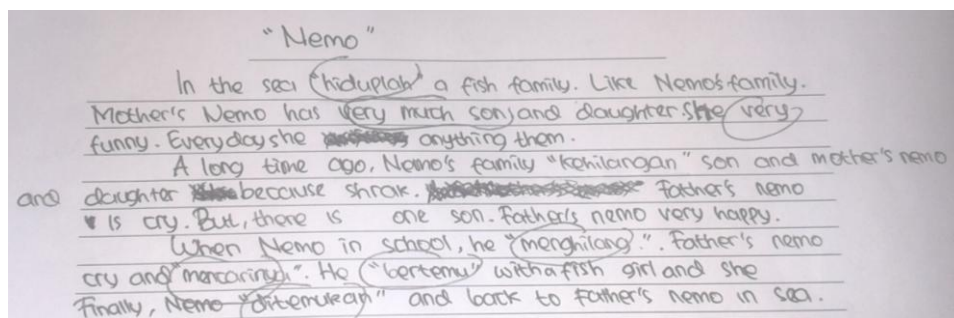 "Nemo"
In the sea "hiduplah" a fish family. Like Nemo's family.
Mother's Nemo has very much son, and daughter. She very
funny. Everyday she anything them.
A long time ago, Nemo's family "kehilangan" son and mother's nemo
and daughter because shrak. Father's nemo
is cry. But, there is one son. Father's nemo very happy.
When Nemo in school, he "menghilang". Father's nemo
cry and "mencarinya". He "bertemu" with a fish girl and she
Finally, Nemo "ditemukan" and back to father's nemo in sea.